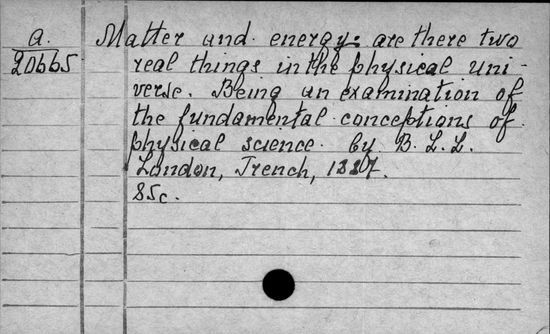 a. Matter and energy: are there two
20665 real things in the physical uni-
verse. Being an examination of
the fundamental conceptions of
physical science. by B. L. L.
London, Trench, 1887.
85c.